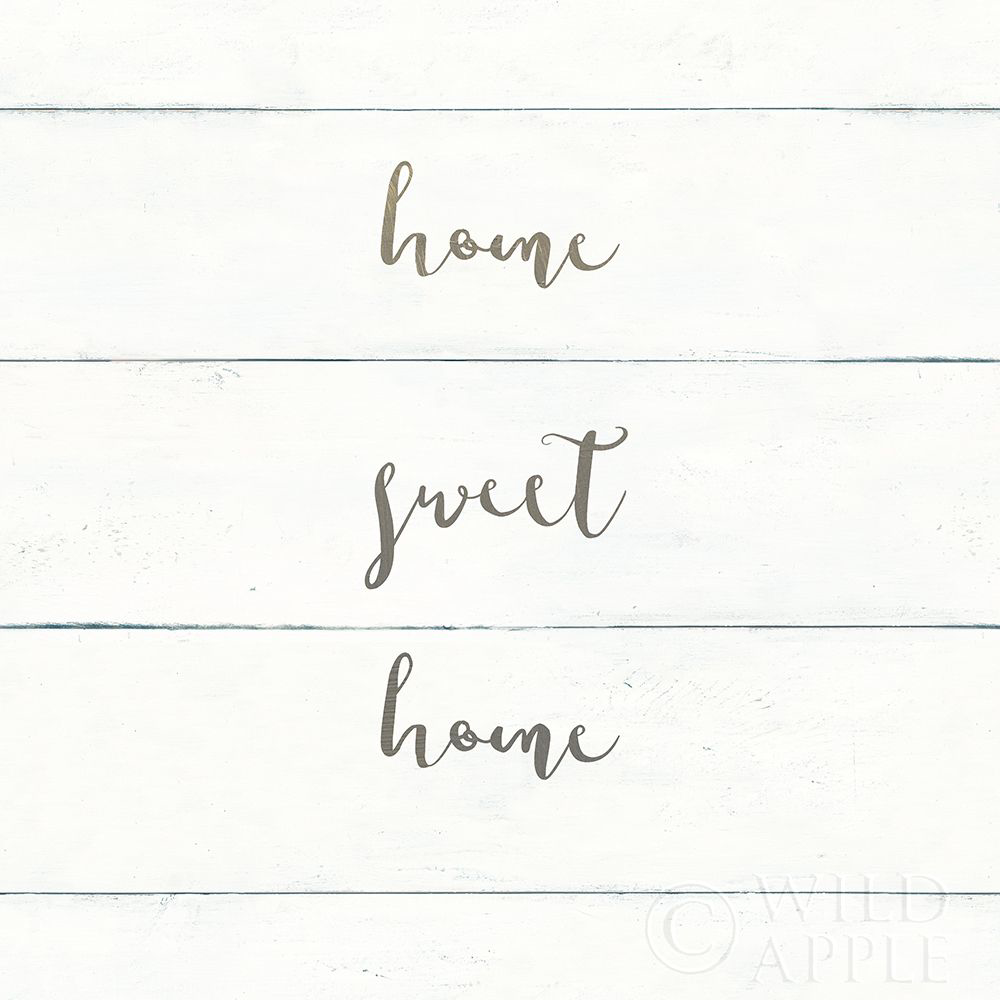 home
sweet
home
© WILD
APPLE